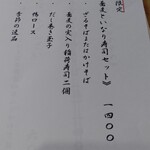 限定
蕎麦といなり寿司セット》 一四〇〇
・ざるそばまたはかけそば
・蕎麦の実入り稲荷寿司二個
・だし巻き玉子
・鴨ロース
・季節の逸品